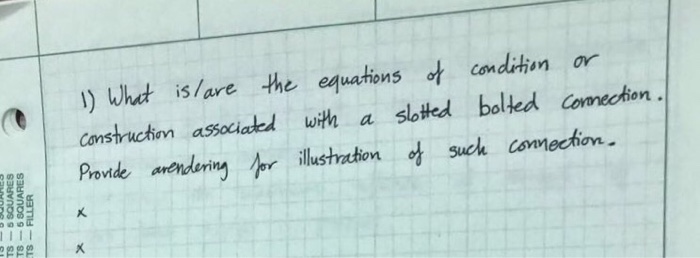 1) What is/are the equations of condition or
construction associated with a slotted bolted connection.
Provide arendering for illustration of such connection.
x
x
TS — 5 SQUARES
TS — 5 SQUARES
TS — FILLER